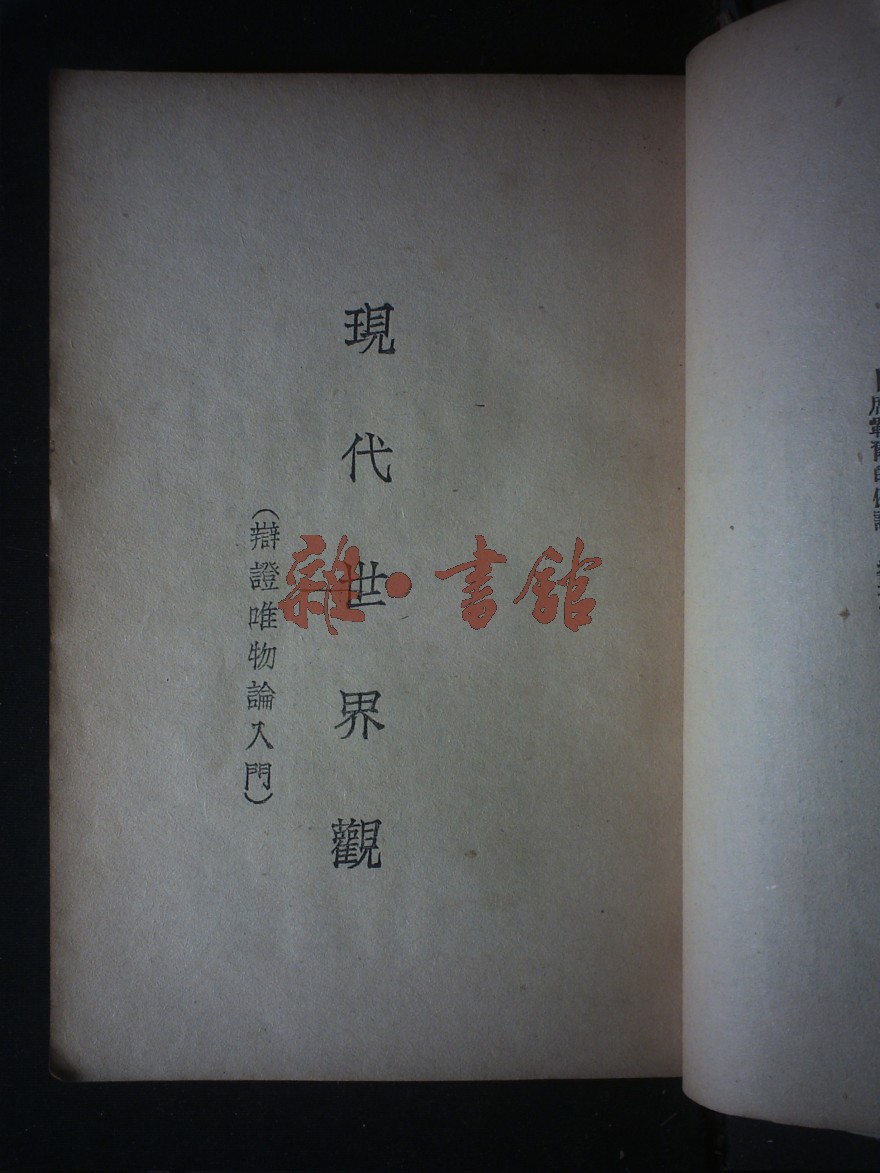 現代世界觀
(辯證唯物論入門)
雜·書館